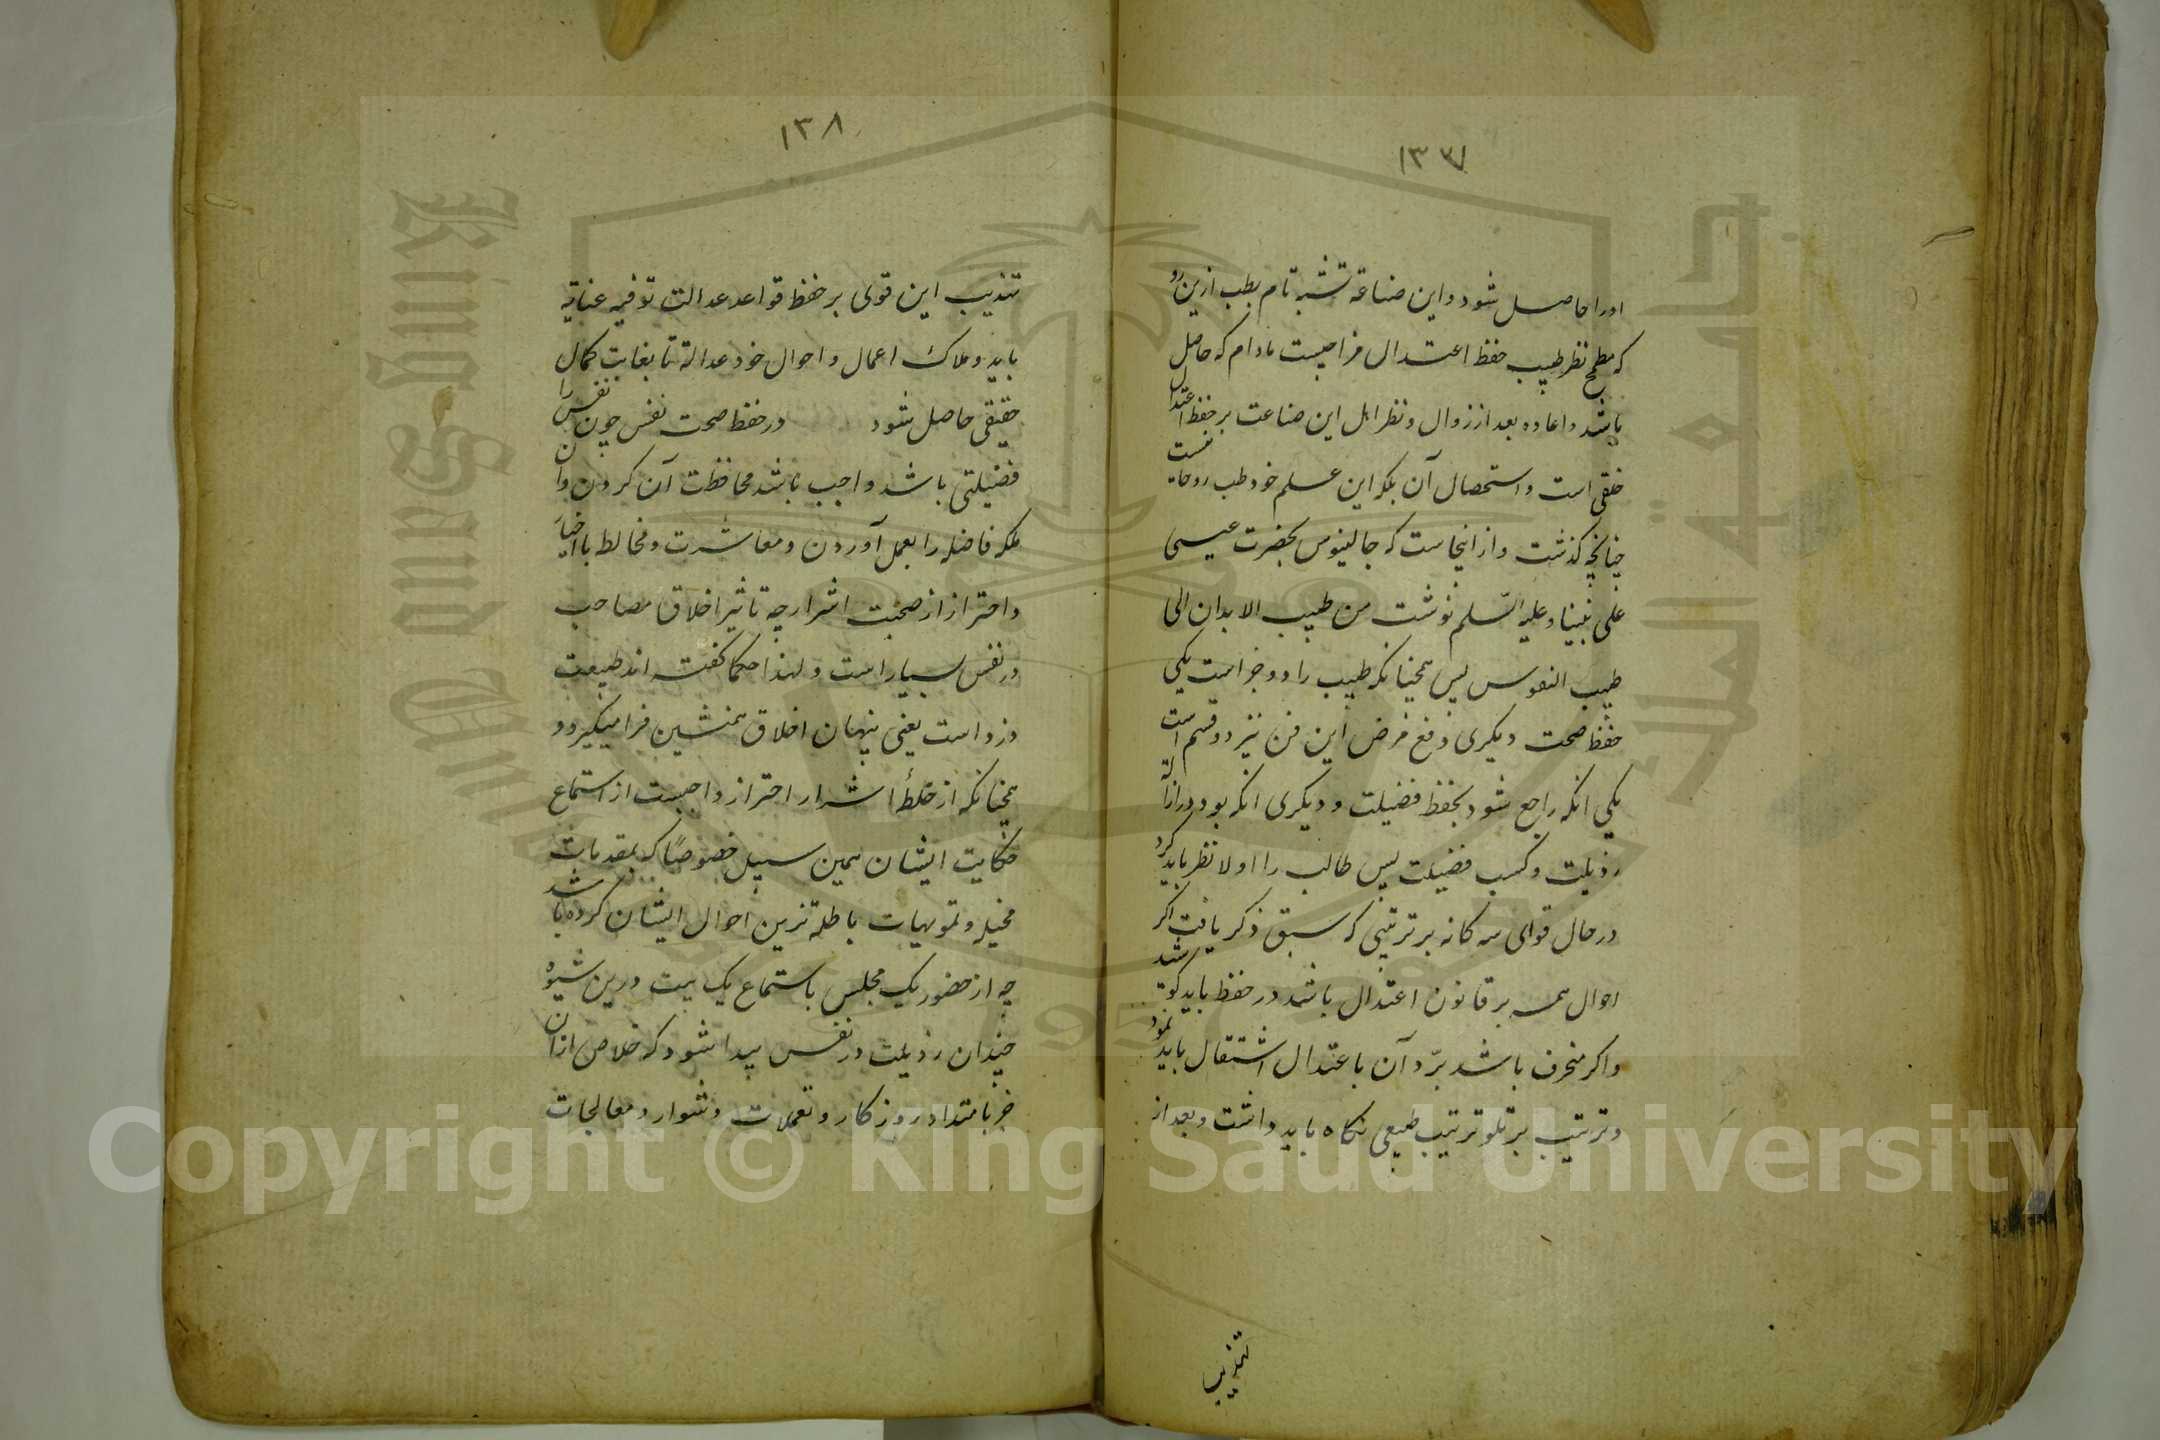 ١٣٧
اورا حاصل شود و این صناعة تشبه تام بطب ازین رو
که مطمح نظر طبیب حفظ اعتدال مزاجیست مادام که حاصل
باشد و اعاده بعد از زوال و نظر اهل این صناعت بر حفظ اعتدال
خلقی است و استحصال آن بلکه این علم خود طب روحانیست
چنانچه گذشت و از اینجاست که جالینوس بحضرت عیسی
علی نبینا و علیه السّلم نوشت من طبیب الابدان الی
طبیب النفوس پس همچنانکه طبیب را دو جز است یکی
حفظ صحت دیگری دفع مرض این فن نیز دو قسم است
یکی انکه راجع شود بحفظ فضیلت و دیگری انکه بود در ازالهٔ
رذیلت و کسب فضیلت پس طالب را اولا نظر باید کرد
در حال قوای سه کانه بر ترتیبی که سبق ذکر یافت اکر
احوال همه بر قانون اعتدال باشد در حفظ باید کوشید
واکر منحرف باشد بردّ آن با عتدال اشتغال باید نمود
و ترتیب بر تلو ترتیب طبیعی نکاه باید داشت و بعد از
تهذیب
١٣٨
تهذیب این قوی بر حفظ قواعد عدالت توفیر عنایة
باید و ملاک اعمال و احوال خود عدالة تا بغایت کمال
حقیقی حاصل شود در حفظ صحت نفس چون نفس را
فضیلتی باشد واجب باشد محافظت آن کردن وان
ملکه فاضله را بعمل آوردن و معاشرت و مخالط با اخیار
و احتراز از صحبت اشرار چه تاثیر اخلاق مصاحب
در نفس بسیار است و لهذا حکما کفته اند طبیعت
دزد است یعنی پنهان اخلاق همنشین فرا میکیرد و
همچنانکه از خلطهٔ اشرار احتراز واجبست از استماع
حکایت ایشان همین سبیل خصوصًا که بمقدمات
مخیله و تمویهات باطله تزیین احوال ایشان کرده باشد
چه از حضور یک مجلس با استماع یک بیت درین شیوه
چندان رذیلت در نفس پیدا شود که خلاص ازان
جز بامتداد روزکار و تعملات دشوار و معالجات
Copyright © King Saud University